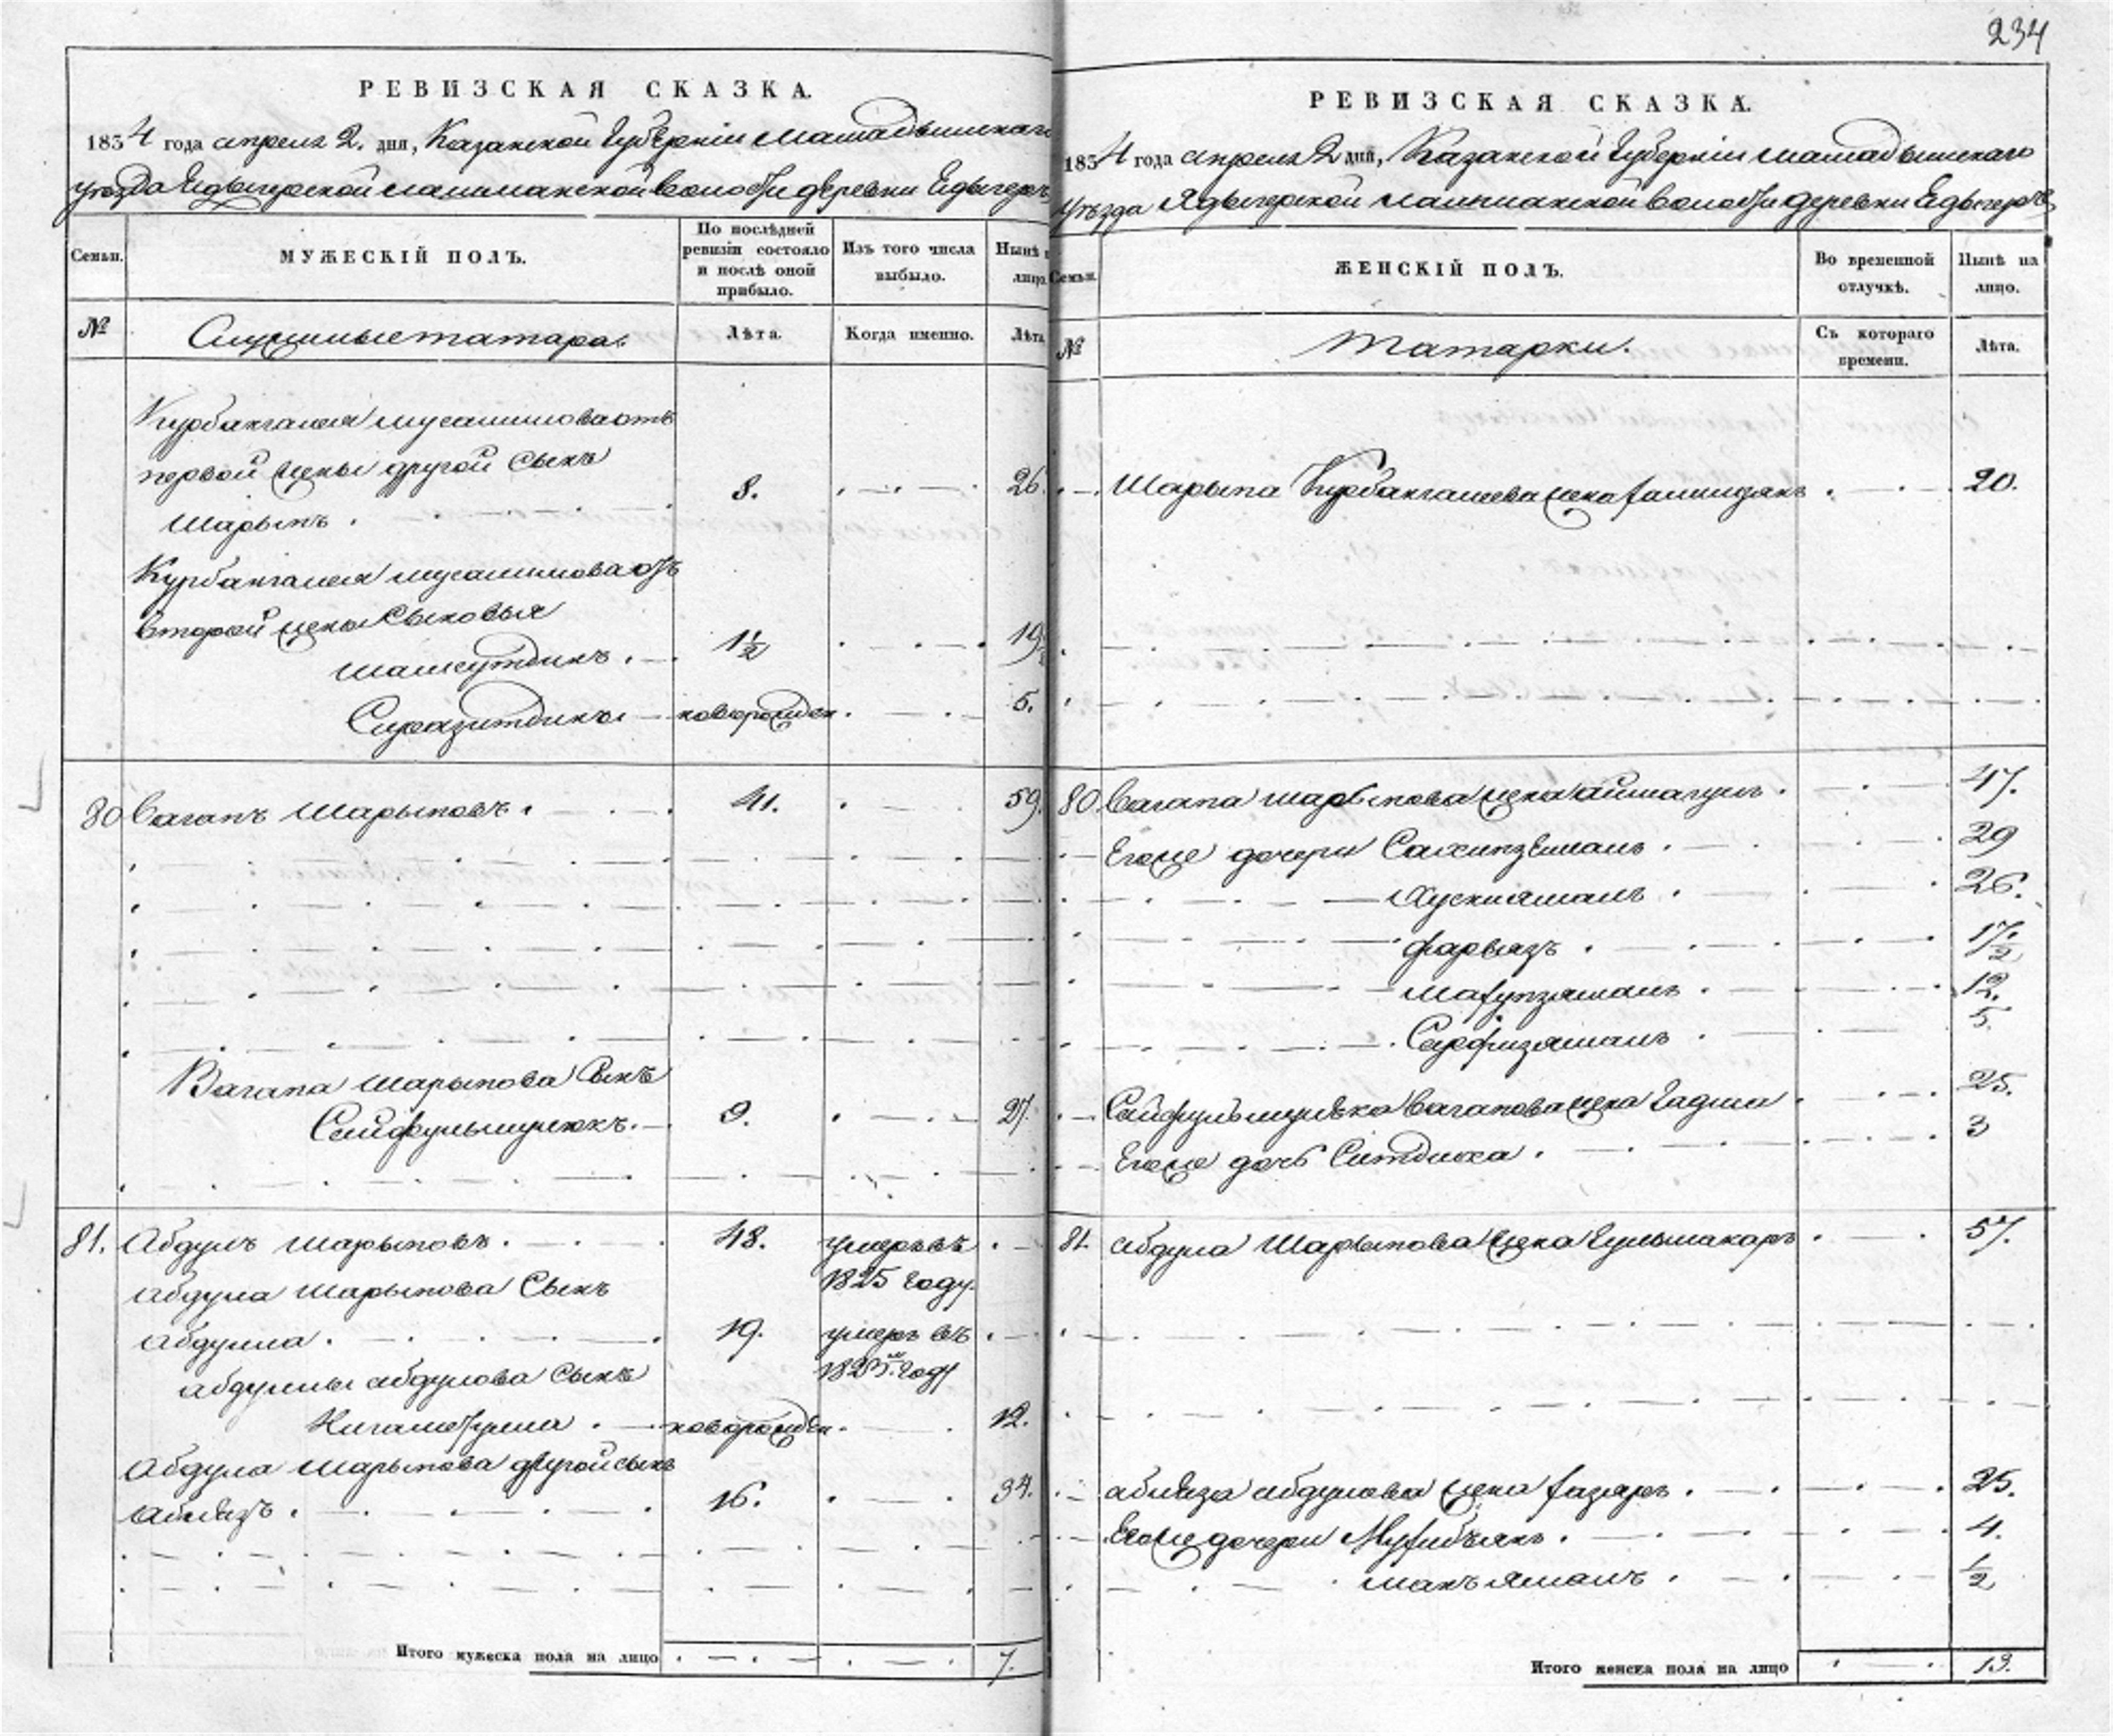 234
РЕВИЗСКАЯ СКАЗКА.
1854 года апреля 2. дня, Казанской Губерніи Мамадышскаго
уѣзда Едыгерской лашманской волости деревни Едыгеръ
Семьи. МУЖЕСКІЙ ПОЛЪ. По послѣдней ревизіи состояло и послѣ оной прибыло. Изъ того числа выбыло. Нынѣ лицо.
№ Служилые татара. Лѣта. Когда именно. Лѣта
Курбангалея Мусалимова отъ
первой жены другой сынъ
Шарыпъ. 8. 26.
Курбангалея Мусалимова отъ
второй жены сыновья
Шамсутдинъ. 1 1/2 19 1/2
Сиразитдинъ новорожден. 5.
80 Вагапъ Шарыповъ. 41. 59.
Вагапа Шарыпова сынъ
Сайфульмулюкъ. 9. 27.
81. Абдулъ Шарыповъ. 48. умеръ въ
1825 году.
Абдула Шарыпова сынъ
Абдулла. 19. умеръ въ
году
Абдуллы Абдулова сынъ
новорожден. 12.
Абдула Шарыпова другой сынъ
Абліязъ. 16. 34.
Итого мужеска пола на лицо 7.
РЕВИЗСКАЯ СКАЗКА.
1854 года апреля 2 дня, Казанской Губерніи Мамадышскаго
уѣзда Ядыгерской лашманской волости деревни Едыгеръ
Семьи. ЖЕНСКІЙ ПОЛЪ. Во временной отлучкѣ. Нынѣ на лицо.
№ Татарки. Съ котораго времени. Лѣта.
Шарыпа Курбангалеева жена 20.
80. Вагапа Шарыпова жена Аймагулъ. 47.
Егоже дочери 29
Хусниямалъ. 26.
Фарвазъ. 17 1/2
12.
5.
Сайфульмулюка Вагапова жена 25.
Егоже дочь Ситдика. 3
81. Абдула Шарыпова жена 57.
Абліяза Абдулова жена 25.
Егоже дочери 4.
1/2
Итого женска пола на лицо 13.